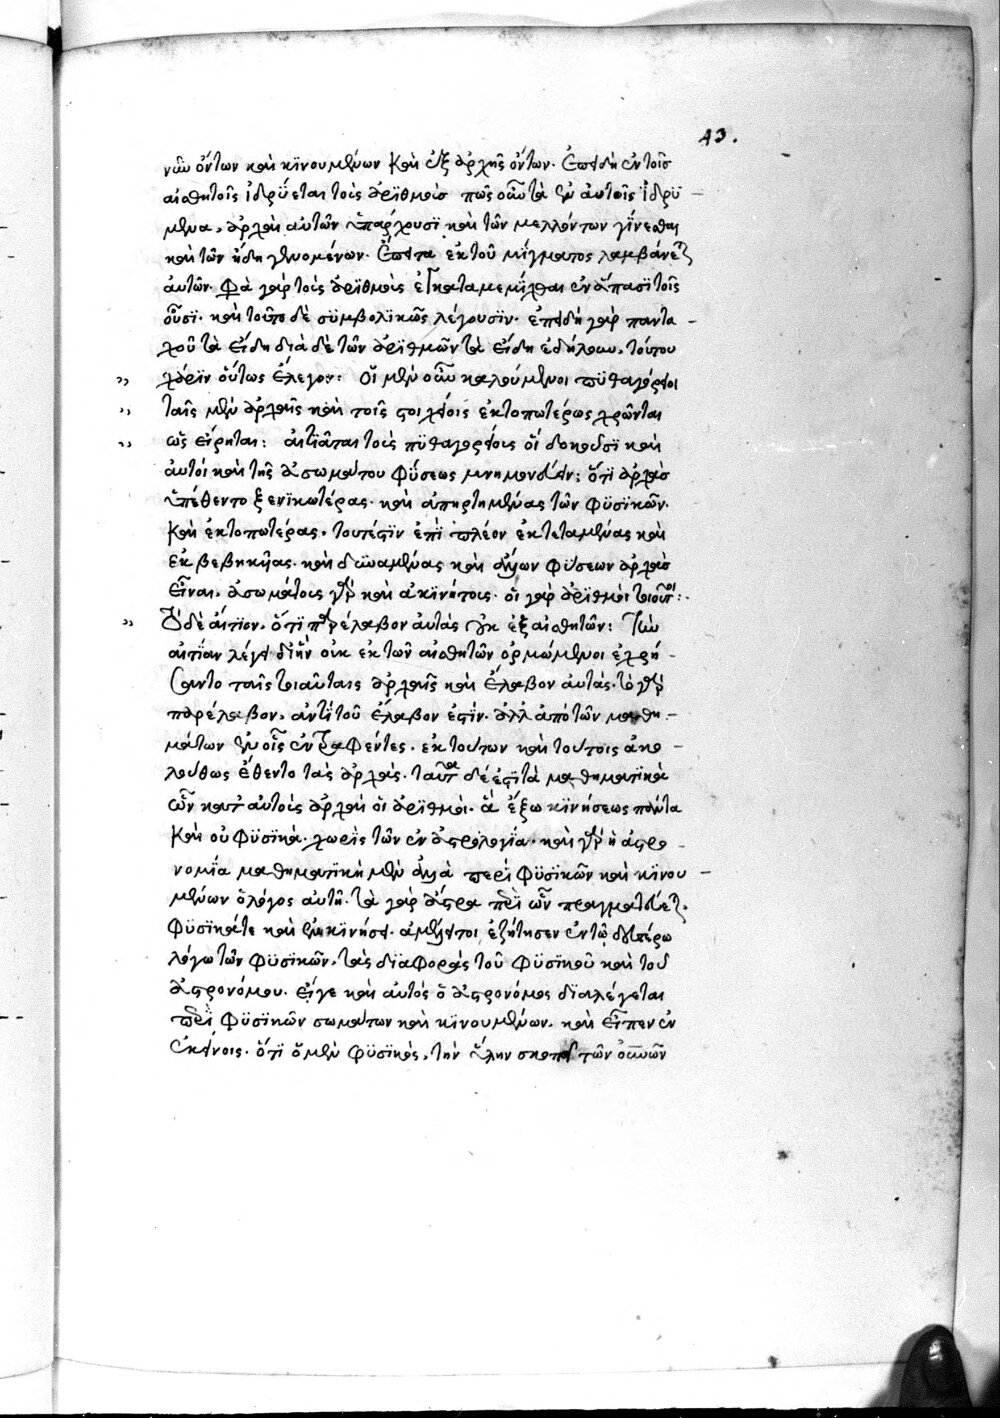 43.
νῦν ὄντων καὶ κινουμένων καὶ ἐξ ἀρχῆς ὄντων. ἐπειδὴ ἐν τοῖς
αἰσθητοῖς ἱδρύεται τοὺς ἀριθμοὺς πῶς οὖν τὰ ἐν αὐτοῖς ἱδρυ
μένα, ἀρχαὶ αὐτῶν ὑπάρχουσι καὶ τῶν μελλόντων γίνεσθαι
καὶ τῶν ἤδη γενομένων. ἔπειτα ἐκ τοῦ μίγματος λαμβάνει
αὐτῶν. φὰ γὰρ τοὺς ἀριθμοὺς ἐγκαταμεμίχθαι ἐν ἅπασι τοῖς
οὖσι. καὶ τοῦτο δὲ συμβολικῶς λέγουσιν. ἐπειδὴ γὰρ παντα
χοῦ τὰ εἴδη διὰ δὲ τῶν ἀριθμῶν τὰ εἴδη ἐδήλουν, τούτου
χάριν οὕτως ἔλεγον: οἱ μὲν οὖν καλούμενοι πυθαγόρειοι
ταῖς μὲν ἀρχαῖς καὶ τοῖς στοιχείοις ἐκτοπωτέρως χρῶνται
ὡς εἴρηται: αἰτιᾶται τοὺς πυθαγορείους οἳ δοκοῦσι καὶ
αὐτοὶ καὶ τῆς ἀσωμάτου φύσεως μνημονεύειν: ὅτι ἀρχὰς
ὑπέθεντο ξενικωτέρας. καὶ ἀπηρτημένας τῶν φυσικῶν.
καὶ ἐκτοπωτέρας, τουτέστιν ἐπὶ πλέον ἐκτεταμένας καὶ
ἐκβεβηκυίας. καὶ δυναμένας καὶ ἄλλων φύσεων ἀρχὰς
εἶναι, ἀσωμάτους γὰρ καὶ ἀκινήτους. οἱ γὰρ ἀριθμοὶ τοιοῦτοι:
τὸ δὲ αἴτιον, ὅτι παρέλαβον αὐτὰς οὐκ ἐξ αἰσθητῶν: τὴν
αἰτίαν λέγει δι' ἣν οὐκ ἐκ τῶν αἰσθητῶν ὁρμώμενοι ἐχρή
σαντο ταῖς τοιαύταις ἀρχαῖς καὶ ἔλαβον αὐτάς. τὸ γὰρ
παρέλαβον, ἀντὶ τοῦ ἔλαβον ἐστίν. ἀλλ' ἀπὸ τῶν μαθη
μάτων ἐν οἷς ἐντραφέντες. ἐκ τούτων καὶ τούτοις ἀκο
λούθως ἔθεντο τὰς ἀρχάς. ταῦτα δέ ἐστι τὰ μαθηματικὰ
ὧν κατ' αὐτοὺς ἀρχαὶ οἱ ἀριθμοί. ἃ ἔξω κινήσεως πάντα
καὶ οὐ φυσικά. χωρὶς τῶν ἐν ἀστρολογίᾳ. καὶ γὰρ ἡ ἀστρο
νομία μαθηματικὴ μὲν ἀλλὰ περὶ φυσικῶν καὶ κινου
μένων ὁ λόγος αὐτῇ. τὰ γὰρ ἄστρα περὶ ὧν πραγματεύεται
φυσικά τε καὶ ἐν κινήσει. ἀμέλει τοι ἐζήτησεν ἐν τῷ δευτέρῳ
λόγῳ τῶν φυσικῶν, τὰς διαφορὰς τοῦ φυσικοῦ καὶ τοῦ
ἀστρονόμου. εἴγε καὶ αὐτὸς ὁ ἀστρονόμος διαλέγεται
περὶ φυσικῶν σωμάτων καὶ κινουμένων. καὶ εἶπεν ἐν
ἐκείνοις. ὅτι ὁ μὲν φυσικὸς, τὴν ὕλην σκοπεῖ τῶν οὐρανῶν